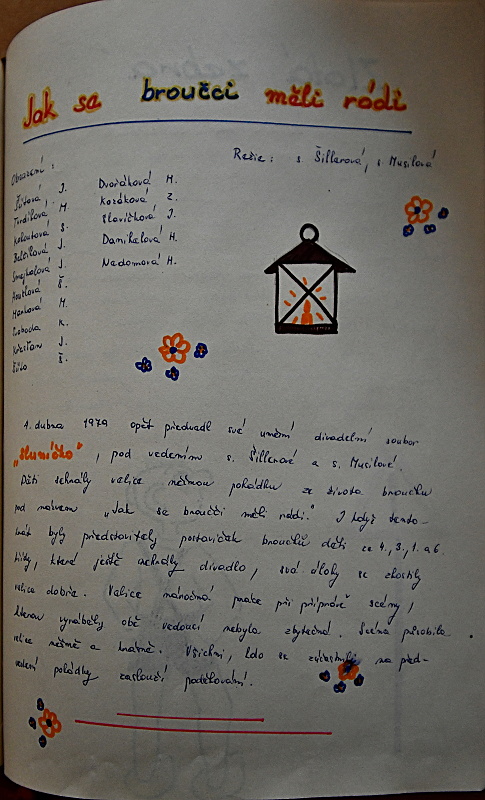 Jak sa broučci měli rádi
Režie: s. Šillerová, s. Musilová
Obsazení:
Šutová J.
Turdíková M.
Koloutová S.
J.
Smejkalová J.
Š.
Maňková M.
Svoboda K.
Křesťan J.
Š.
Dvořáková M.
Kozáková Z.
Slavíčková J.
Damihelová H.
Nadomová H.
4. dubna 1979 opět předvedl své umění divadelní soubor
"Sluníčko", pod vedením s. Šillerové a s. Musilové.
Děti sehrály velice něžnou pohádku ze života broučků
pod názvem "Jak se broučci měli rádi." I když tento-
krát byly představitely postaviček broučků děti ze 4., 3., 1. a 6.
třídy, které ještě nehrály divadlo, své úlohy se zhostily
velice dobře. Velice náročná práce při přípravě scény,
kterou vyráběly obě vedoucí nebyla zbytečná. Scéna působila
velice něžně a hravě. Všichni, kdo se zúčastnili na před-
vedení pohádky zaslouží poděkování.